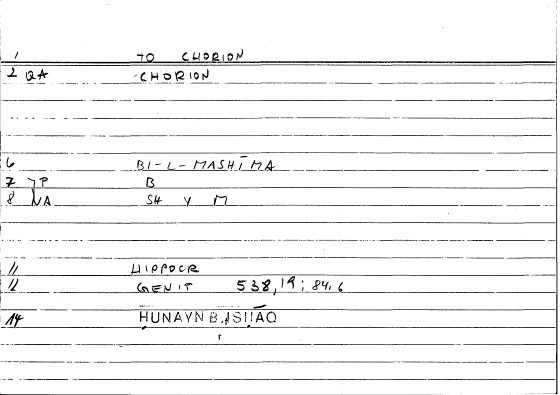 1 TO CHORION
2 QA CHORION
6 BI-L-MASHĪMA
7 JP B
8 NA SH Y M
11 HIPPOCR
12 GENIT 538,19; 84.6
14 ḤUNAYN B. ISḤĀQ